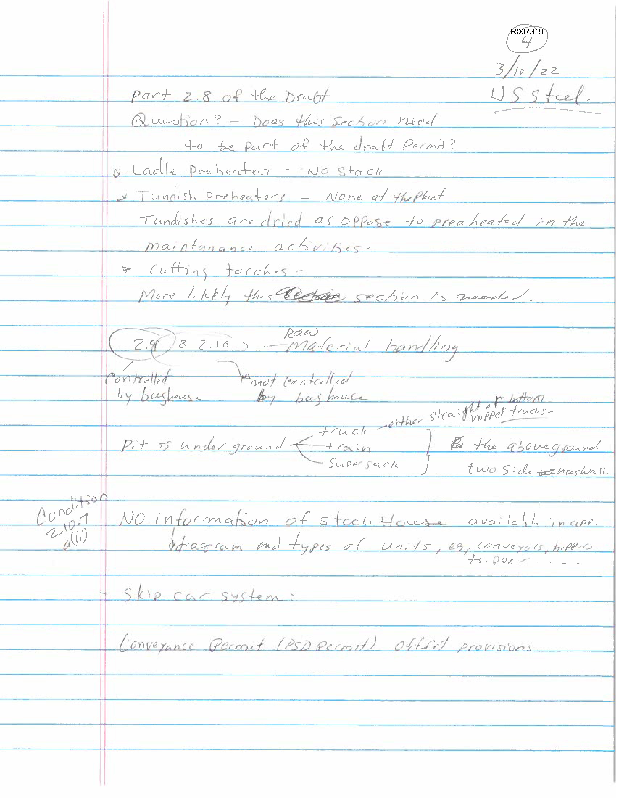 R007391
4
3/10/22
US Steel.
Part 2.8 of the Draft
Question? - Does this Section need
to be part of the draft Permit?
Ladle Preheaters - No Stack
Tundish preheaters - None at the Plant
Tundishes are dried as oppose to preheated in the
maintanance activities.
Cutting torches -
More likely this section is needed.
Raw
2.9 & 2.10 - Material handling
Controlled by baghouse
not controlled by baghouse
Pit is under ground
truck - either straight or bottom
train
Supersack
the aboveground
two side
Condition
2.10.7
d(ii)
No information of Stock House available in app.
diagram and types of units, eg, conveyors, hoppers
Skip car system:
Conveyance Permit (PSD Permit) offset provisions